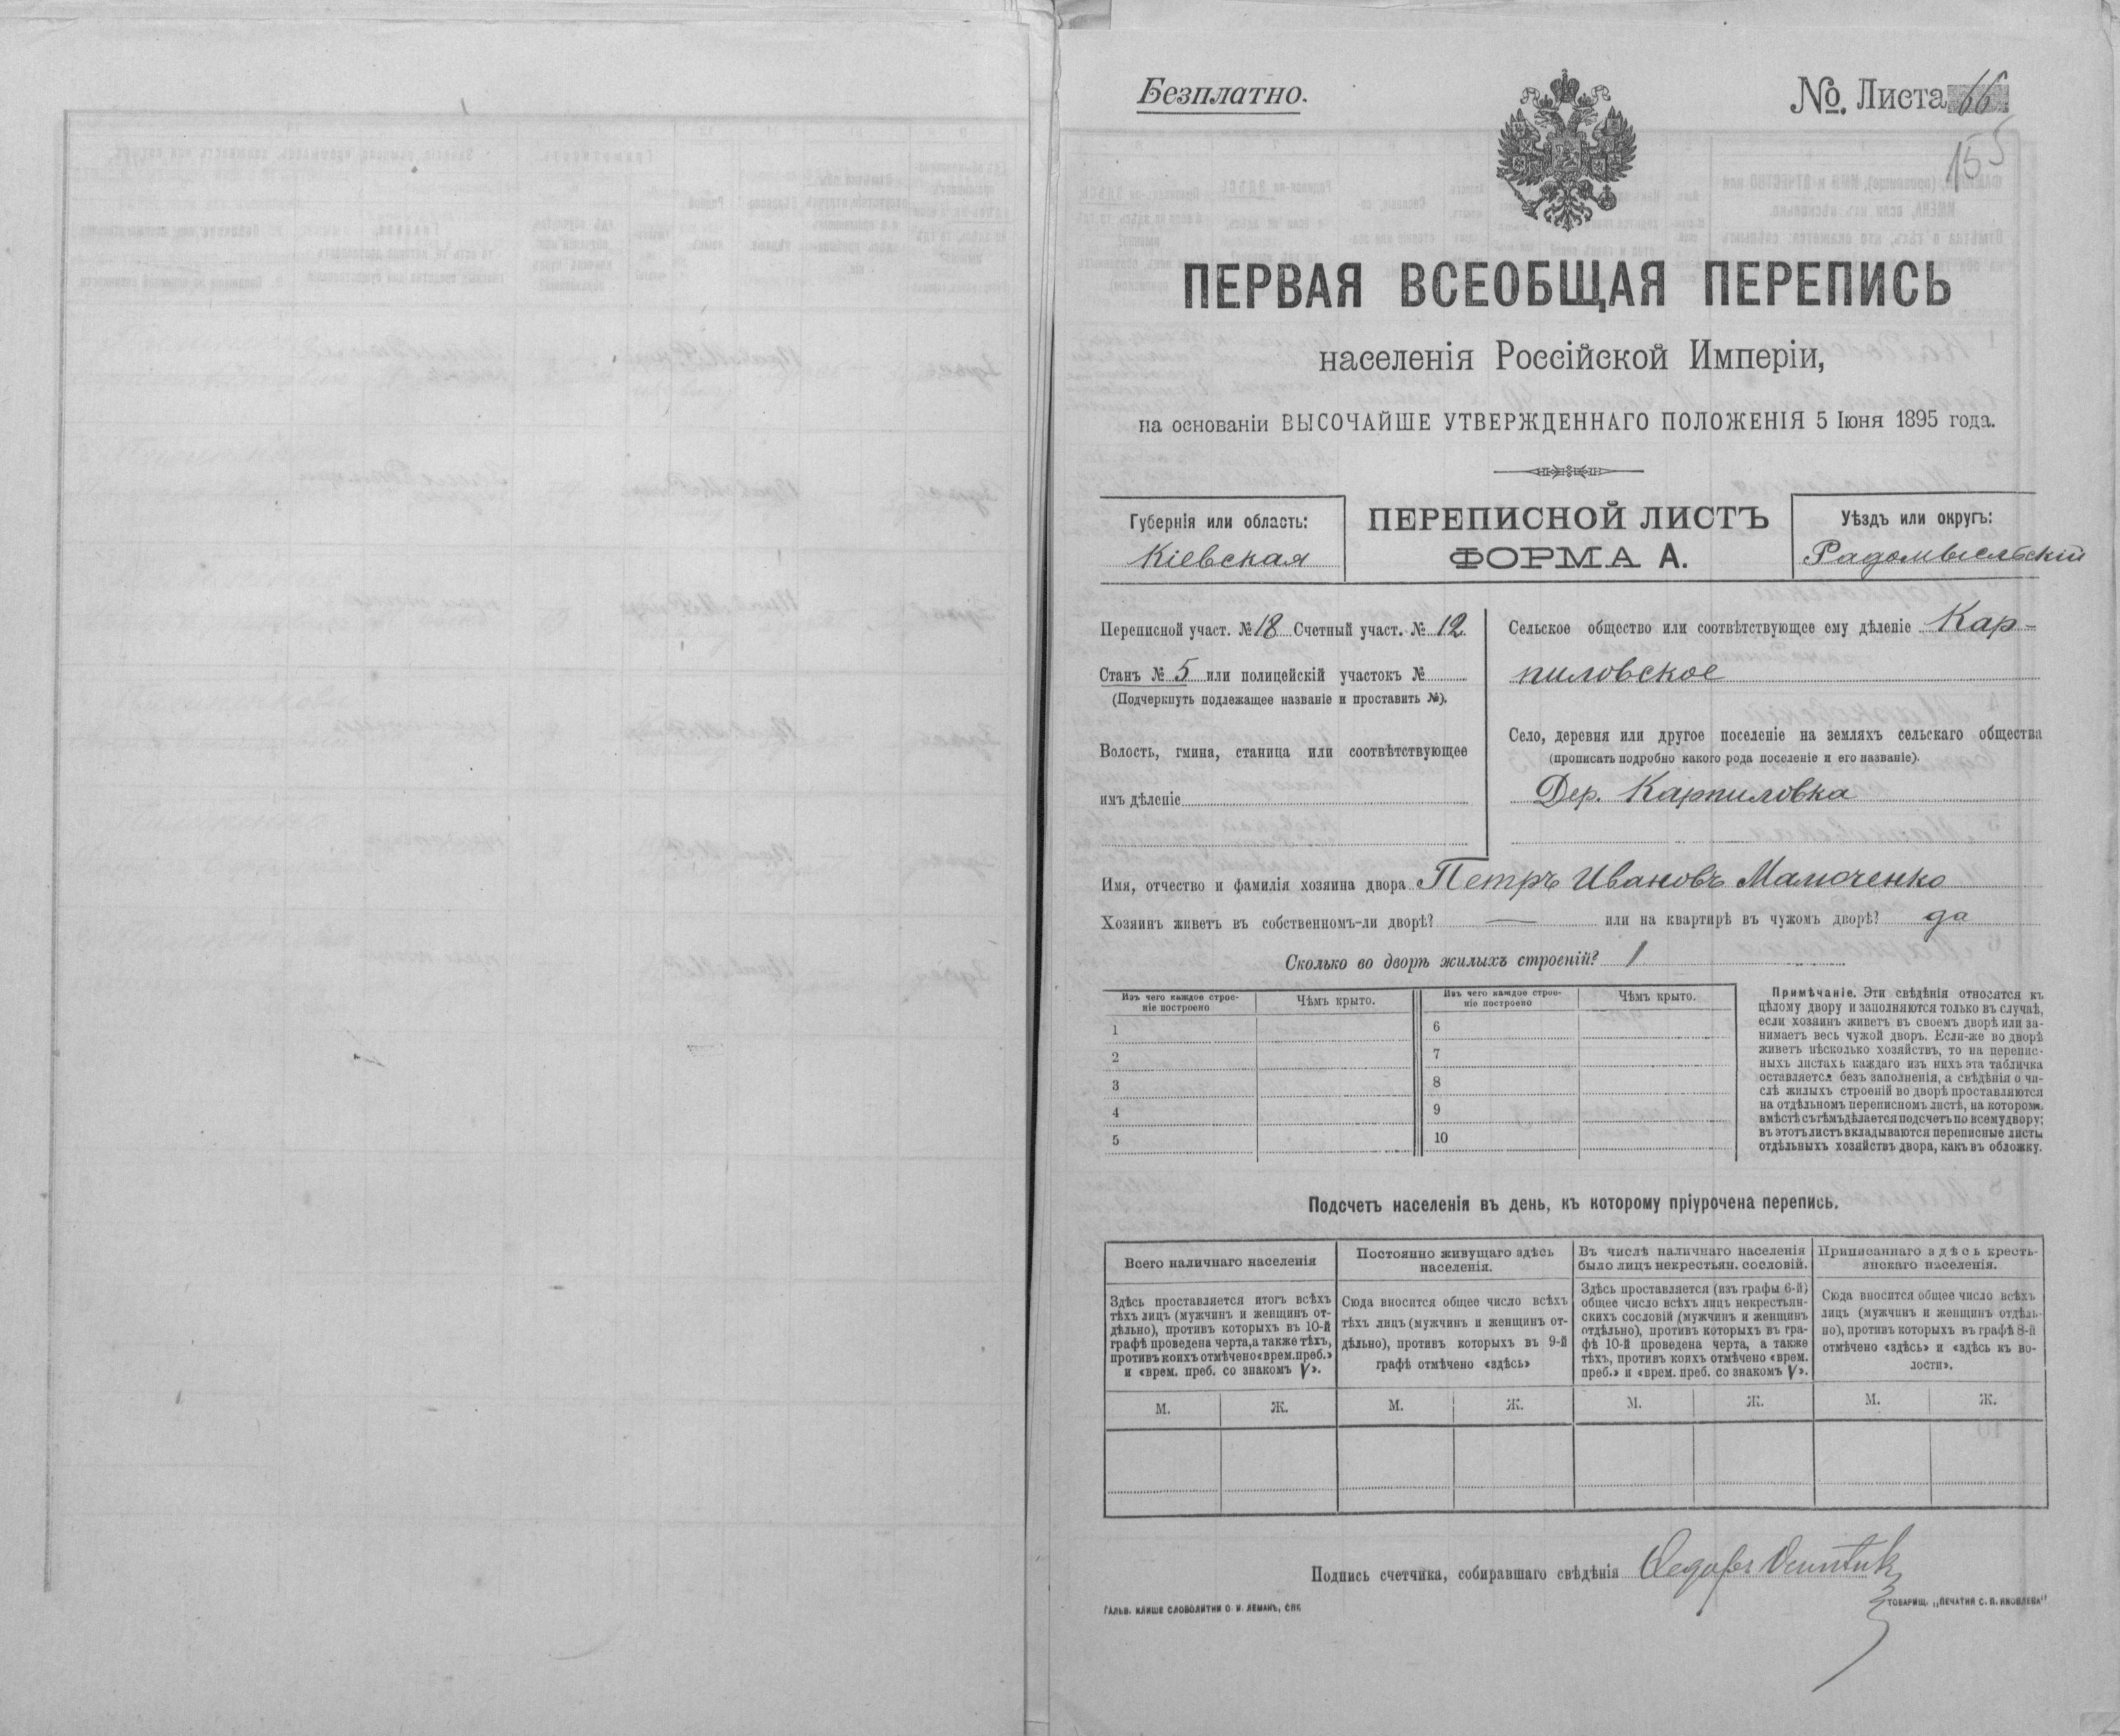 Безплатно.
№ Листа 66
155
ПЕРВАЯ ВСЕОБЩАЯ ПЕРЕПИСЬ
населенія Россійской Имперіи,
на основаніи ВЫСОЧАЙШЕ УТВЕРЖДЕННАГО ПОЛОЖЕНІЯ 5 Іюня 1895 года.
Губернія или область:
Кіевская
ПЕРЕПИСНОЙ ЛИСТЪ
ФОРМА А.
Уѣздъ или округъ:
Радомысльскій
Переписной участ. № 18 Счетный участ. № 12.
Станъ № 5 или полицейскій участокъ №
(Подчеркнуть подлежащее названіе и проставить №).
Волость, гмина, станица или соотвѣтствующее
имъ дѣленіе
Сельское общество или соотвѣтствующее ему дѣленіе Кар-
пиловское
Село, деревня или другое поселеніе на земляхъ сельскаго общества
(прописать подробно какого рода поселеніе и его названіе).
Дер. Карпиловка
Имя, отчество и фамилія хозяина двора Петръ Ивановъ Малюченко
Хозяинъ живетъ въ собственномъ-ли дворѣ? — или на квартирѣ въ чужомъ дворѣ? да
Сколько во дворѣ жилыхъ строеній? 1
Изъ чего каждое строе-
ніе построено
Чѣмъ крыто.
Изъ чего каждое строе-
ніе построено
Чѣмъ крыто.
1
6
2
7
3
8
4
9
5
10
Примѣчаніе. Эти свѣдѣнія относятся къ
цѣлому двору и заполняются только въ случаѣ,
если хозяинъ живетъ въ своемъ дворѣ или за-
нимаетъ весь чужой дворъ. Если-же во дворѣ
живетъ нѣсколько хозяйствъ, то на перепис-
ныхъ листахъ каждаго изъ нихъ эта табличка
оставляется безъ заполненія, а свѣдѣнія о чи-
слѣ жилыхъ строеній во дворѣ проставляются
на отдѣльномъ переписномъ листѣ, на которомъ
вмѣстѣ съ тѣмъ дѣлается подсчетъ по всему двору;
въ этотъ листъ вкладываются переписные листы
отдѣльныхъ хозяйствъ двора, какъ въ обложку.
Подсчетъ населенія въ день, къ которому пріурочена перепись.
Всего наличнаго населенія
Здѣсь проставляется итогъ всѣхъ
тѣхъ лицъ (мужчинъ и женщинъ от-
дѣльно), противъ которыхъ въ 10-й
графѣ проведена черта, а также тѣхъ,
противъ коихъ отмѣчено «врем. преб.»
и «врем. преб. со знакомъ V».
Постоянно живущаго здѣсь
населенія.
Сюда вносится общее число всѣхъ
тѣхъ лицъ (мужчинъ и женщинъ от-
дѣльно), противъ которыхъ въ 9-й
графѣ отмѣчено «здѣсь»
Въ числѣ наличнаго населенія
было лицъ некрестьян. сословій.
Здѣсь проставляется (изъ графы 6-й)
общее число всѣхъ лицъ некрестьян-
скихъ сословій (мужчинъ и женщинъ
отдѣльно), противъ которыхъ въ гра-
фѣ 10-й проведена черта, а также
тѣхъ, противъ коихъ отмѣчено «врем.
преб.» и «врем. преб. со знакомъ V».
Приписаннаго здѣсь кресть-
янскаго населенія.
Сюда вносится общее число всѣхъ
лицъ (мужчинъ и женщинъ отдѣль-
но), противъ которыхъ въ графѣ 8-й
отмѣчено «здѣсь» и «здѣсь къ во-
лости».
М. Ж. М. Ж. М. Ж. М. Ж.
Подпись счетчика, собиравшаго свѣдѣнія
ГАЛЬВ. КЛИШЕ СЛОВОЛИТНИ О. И. ЛЕМАНЪ, СПБ.
ТОВАРИЩ. „ПЕЧАТНЯ С. П. ЯКОВЛЕВА"